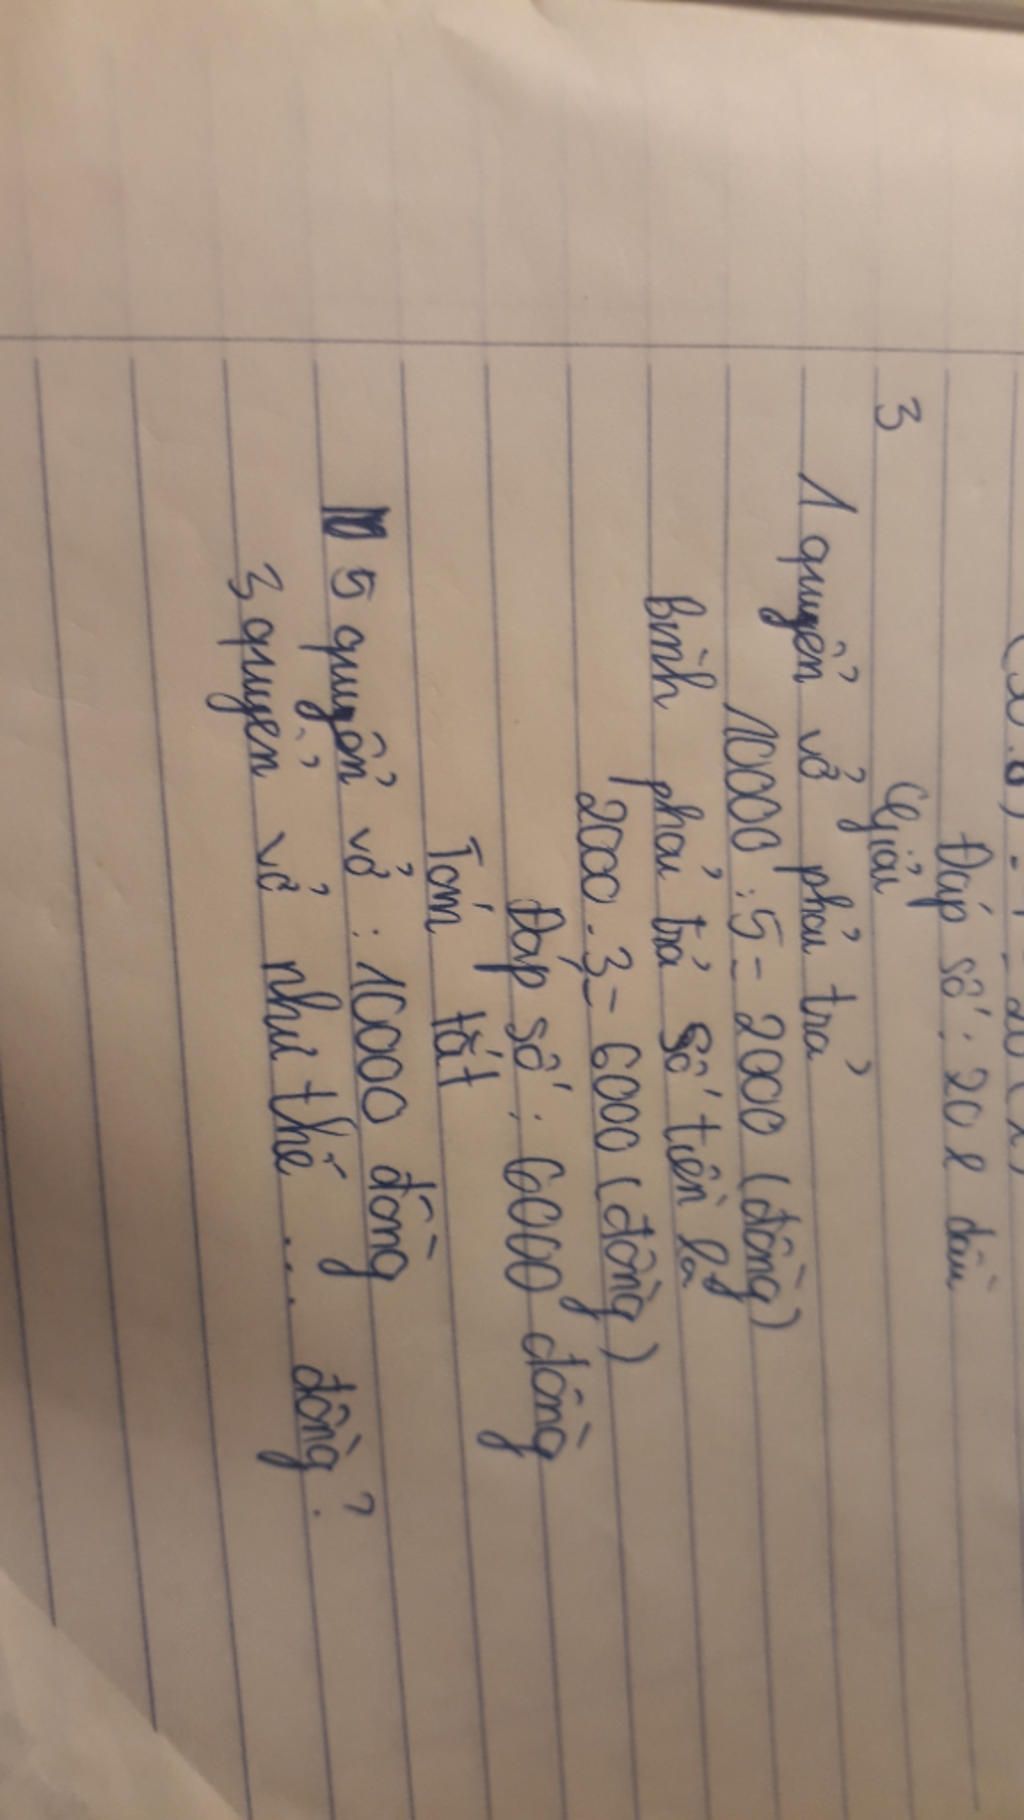 Đáp số : 20 l dầu
Giải
3
1 quyển vở phải trả
10000 : 5 = 2000 (đồng)
Bình phải trả số tiền là
2000 . 3 = 6000 (đồng)
Đáp số : 6000 đồng
Tóm tắt
5 quyển vở : 10000 đồng
3 quyển vở như thế ... đồng?